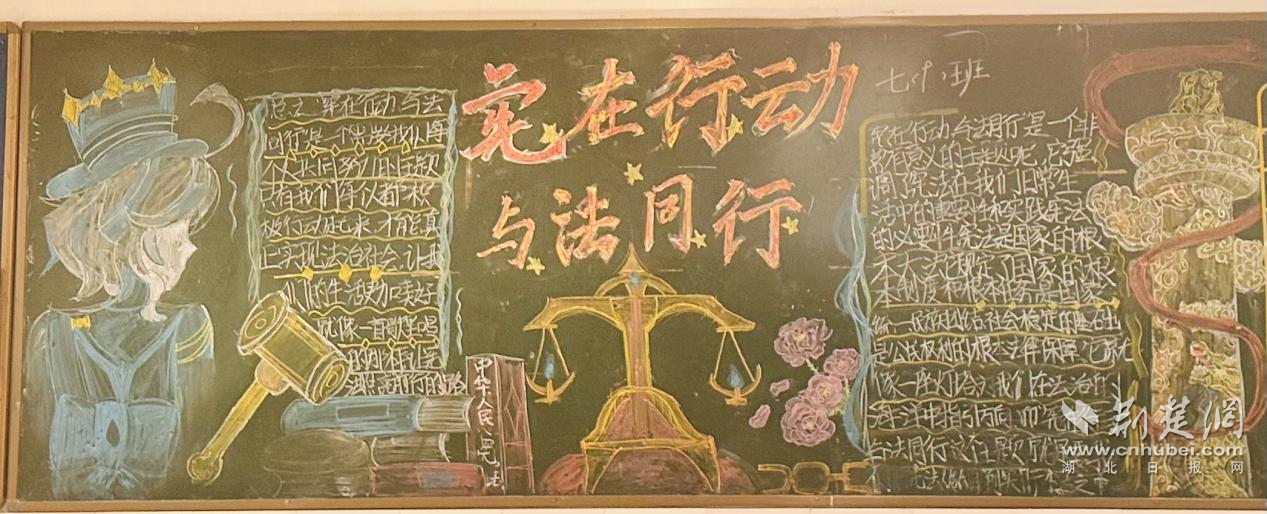 宪在行动
与法同行
七(十)班
总之,宪在行动与法
同行是一个需要我们每
个人共同参与的主题
只有我们每个人都积
极行动起来,才能真
正实现法治社会,让我
们的生活更加美好
就像一首歌里唱
的那样让
法
前行的路
中华人民
宪在行动与法同行是一个非
常有意义的主题呢,它强
调宪法在我们日常生
活中的重要性和实践宪法
的必要性宪法是国家的根
本大法规定了国家的根
本制度和根本任务是国家
统一民族团结社会稳定的基石
是公民权利的根本法律保障它就
像一座灯塔为我们在法治的
海洋中指方向而宪
与法同行这个主题
荆楚网
www.cnhubei.com
湖北日报网